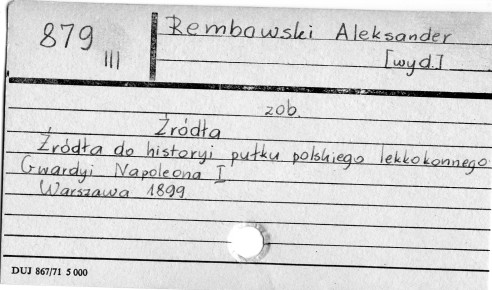 879
III
Rembowski Aleksander
[wyd.]
zob.
Źródła
Źródła do historyi pułku polskiego lekkokonnego
Gwardyi Napoleona I
Warszawa 1899
DUJ 867/71 5 000